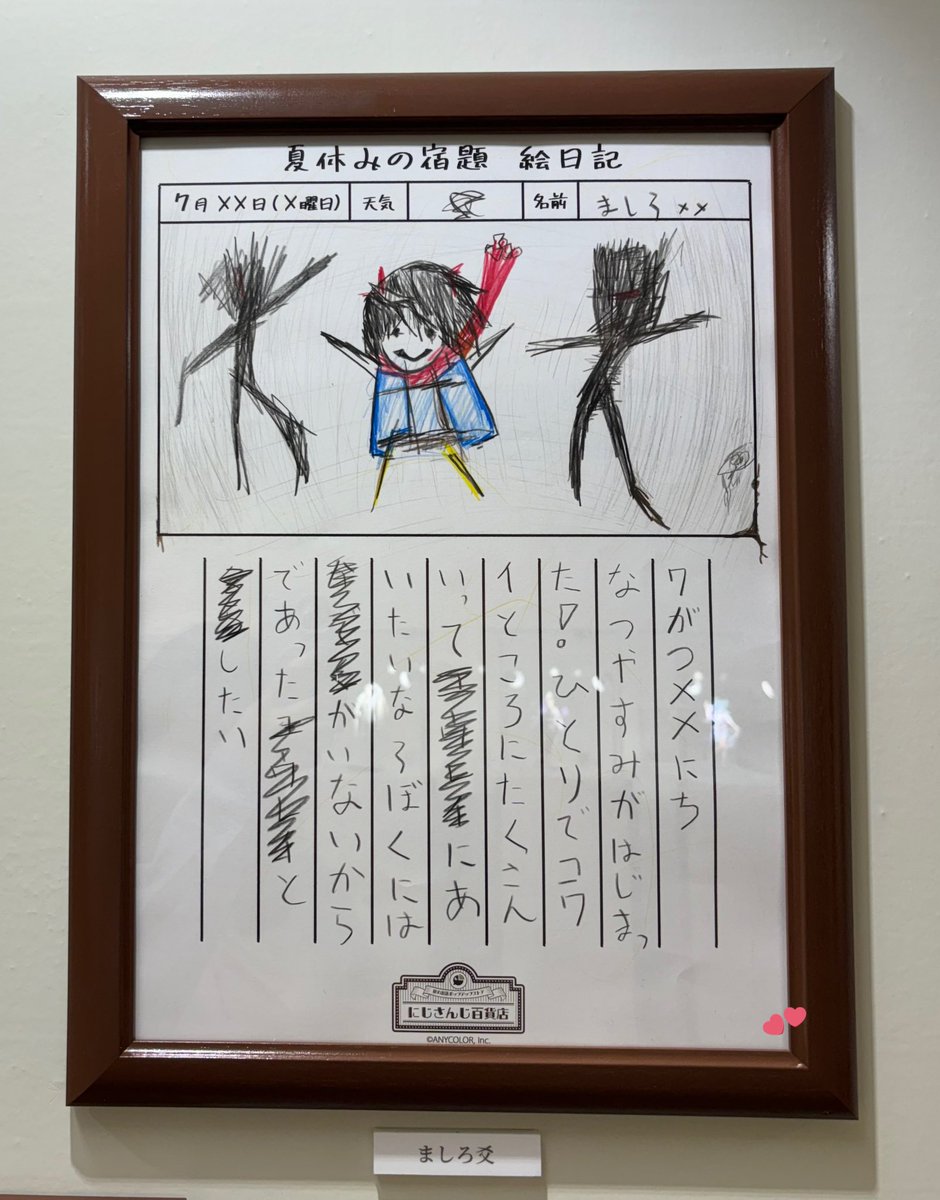 夏休みの宿題 絵日記
7月 ××日(×曜日) 天気 名前 ましろ ××
7がつ××にち
なつやすみがはじまっ
た!。ひとりでコワ
イところにたくさん
いって にあ
いたいなろぼくには
がいないから
であった と
したい
にじさんじ百貨店
©ANYCOLOR, Inc.
ましろ爻